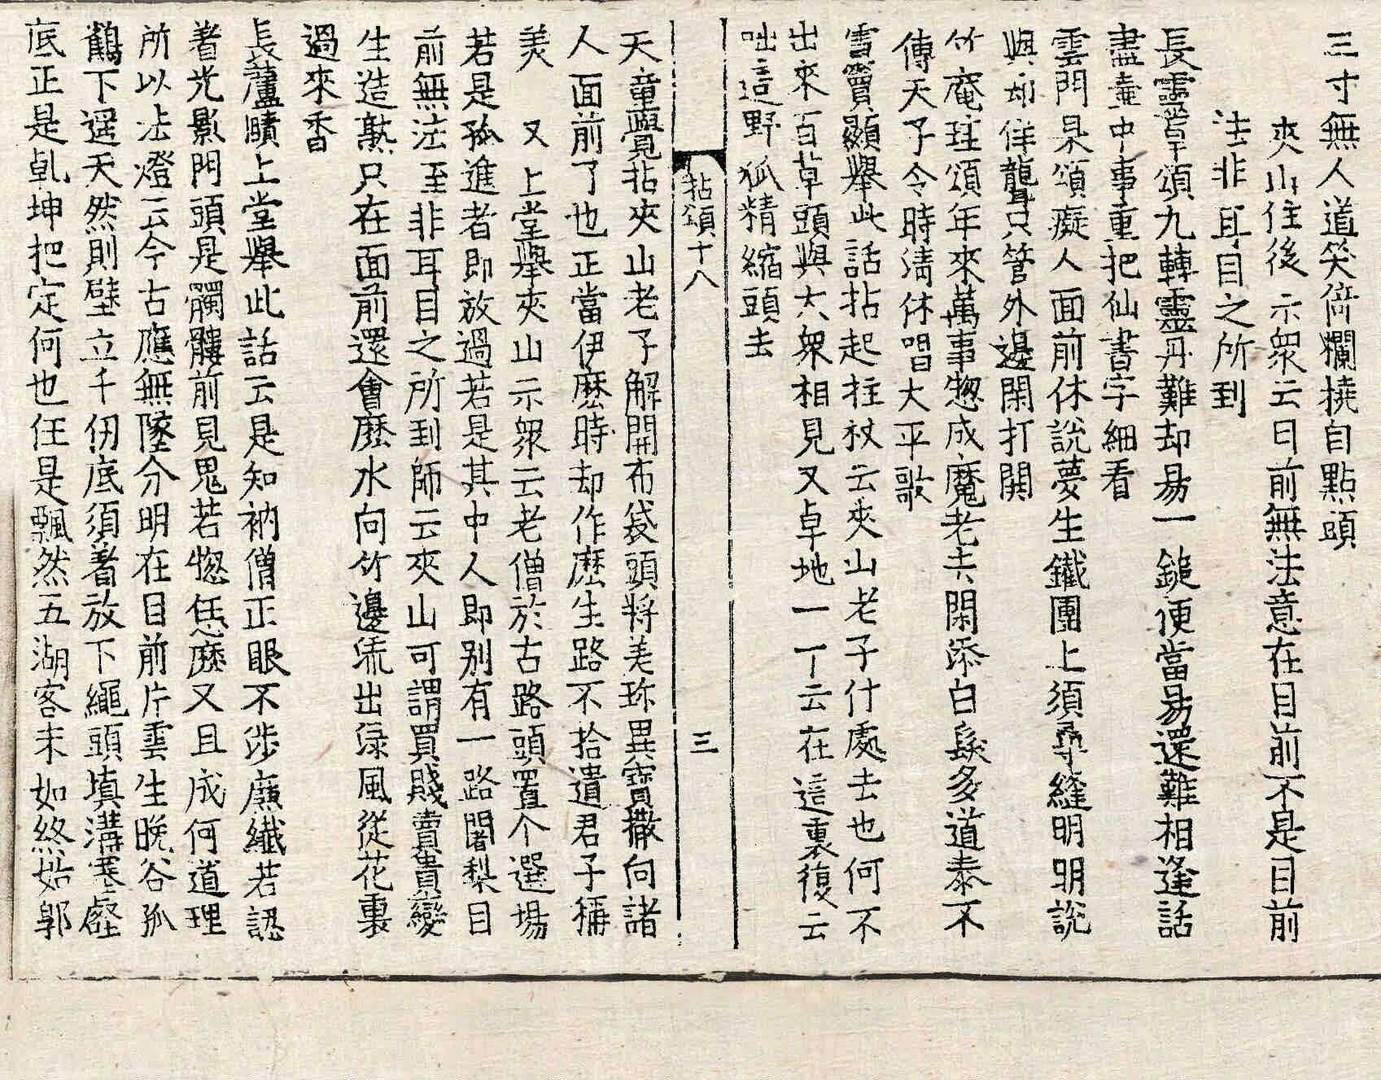 三寸無人道笑倚欄橈自點頭
夾山住後示衆云目前無法意在目前不是目前
法非耳目之所到
長靈卓頌九轉靈丹難却易一鎚便當易還難相逢話
盡壷中事重把仙書字細看
雲門杲頌癡人面前休說夢生鐵團上須尋縫明明說
與却佯聾只管外邊閑打閧
竹庵珪頌年來萬事惣成魔老去閑添白髮多道泰不
傳天子令時淸休唱大平歌
雪竇顯擧此話拈起拄杖云夾山老子什處去也何不
出來百草頭與大衆相見又卓地一下云在這裏復云
咄這野狐精縮頭去
拈頌十八 三
天童覺拈夾山老子解開布袋頭將差珎異寶撒向諸
人面前了也正當伊麽時却作麽生路不拾遺君子稱
羙 又上堂擧夾山示衆云老僧於古路頭置个選場
若是孤進者即放過若是其中人即別有一路闍梨目
前無法至非耳目之所到師云夾山可謂買賤賣貴變
生造熟只在面前還會麽水向竹邊流出淥風從花裏
過來香
長蘆賾上堂擧此話云是知衲僧正眼不涉廉纖若認
著光影門頭是髑髏前見鬼若惣恁麽又且成何道理
所以法燈云今古應無墜分明在目前片雲生晚谷孤
鶴下遥天然則壁立千仞底須著放下繩頭塡溝塞壑
底正是乹坤把定何也任是飄然五湖客未如終始郭